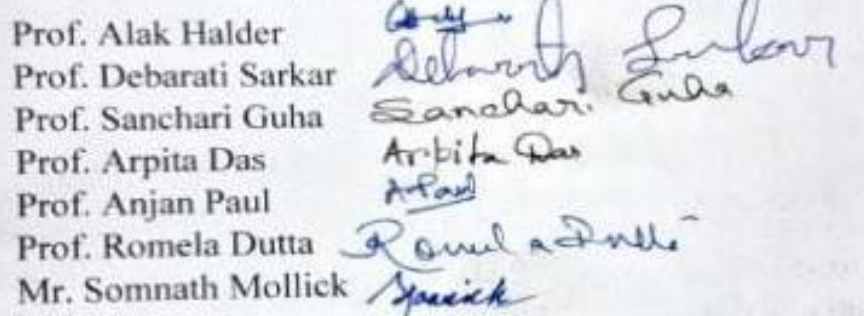 Prof. Alak Halder
Prof. Debarati Sarkar Debarati Sarkar
Prof. Sanchari Guha Sanchari Guha
Prof. Arpita Das Arpita Das
Prof. Anjan Paul A Paul
Prof. Romela Dutta Romela Dutta
Mr. Somnath Mollick